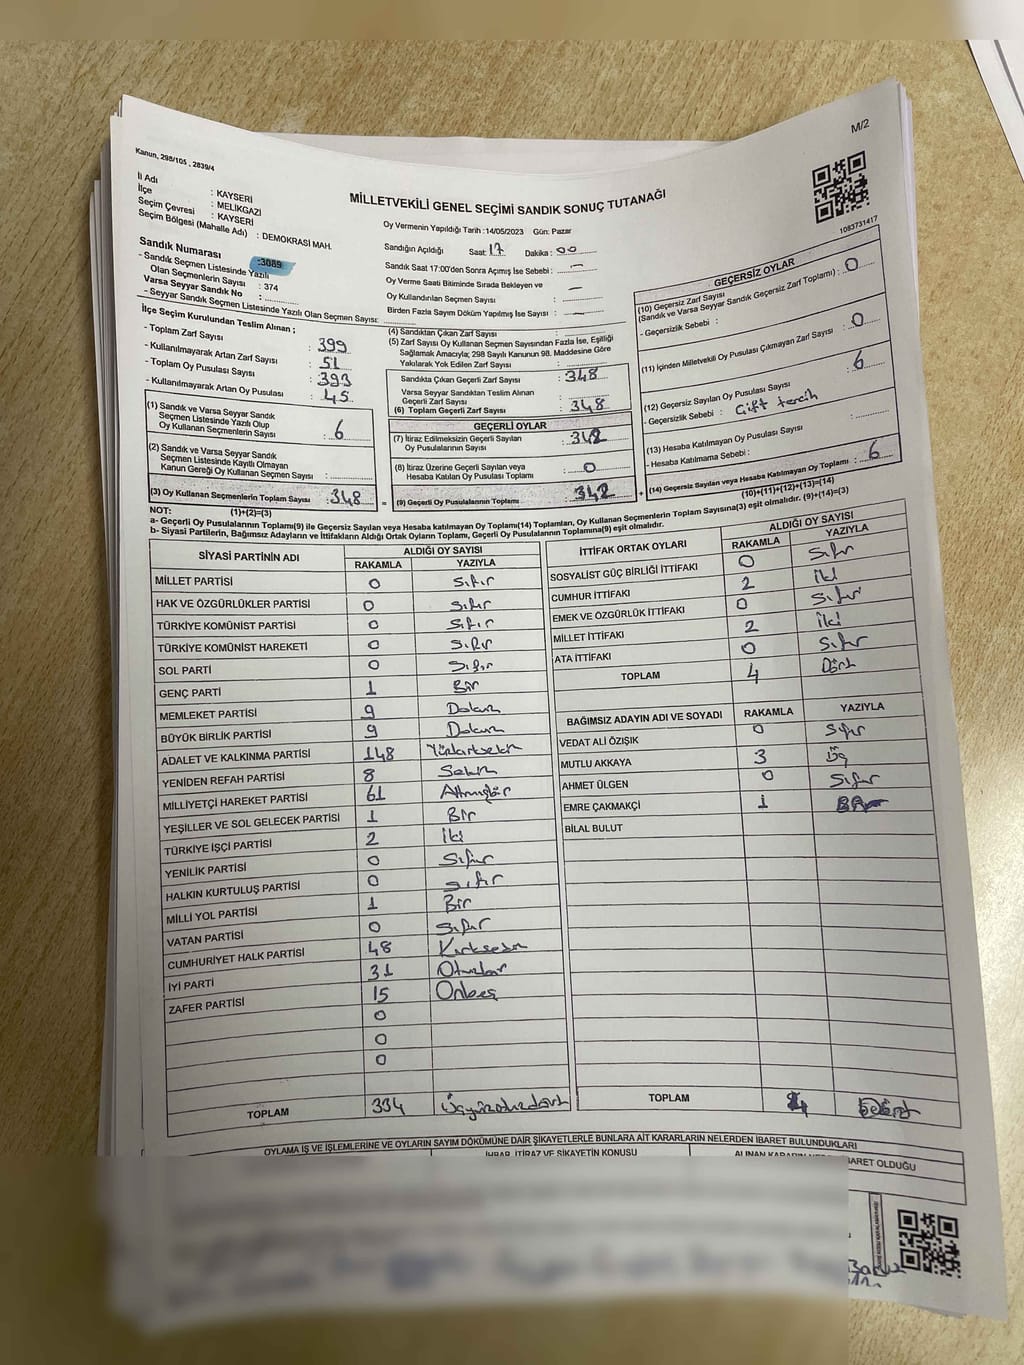 M/2
Kanun, 298/105 , 2839/4
İl Adı : KAYSERİ
İlçe : MELİKGAZİ
Seçim Çevresi : KAYSERİ
Seçim Bölgesi (Mahalle Adı) : DEMOKRASİ MAH.
MİLLETVEKİLİ GENEL SEÇİMİ SANDIK SONUÇ TUTANAĞI
1083731417
Oy Vermenin Yapıldığı Tarih :14/05/2023 Gün: Pazar
Sandığın Açıldığı Saat: 17 Dakika : 00
Sandık Saat 17:00'den Sonra Açımış İse Sebebi : —
Oy Verme Saati Bitiminde Sırada Bekleyen ve
Oy Kullandırılan Seçmen Sayısı : —
Birden Fazla Sayım Döküm Yapılmış İse Sayısı : —
Sandık Numarası :3089
- Sandık Seçmen Listesinde Yazılı
Olan Seçmenlerin Sayısı : 374
Varsa Seyyar Sandık No :
- Seyyar Sandık Seçmen Listesinde Yazılı Olan Seçmen Sayısı:
İlçe Seçim Kurulundan Teslim Alınan ;
- Toplam Zarf Sayısı : 399
- Kullanılmayarak Artan Zarf Sayısı : 51
- Toplam Oy Pusulası Sayısı : 393
- Kullanılmayarak Artan Oy Pusulası : 45
(1) Sandık ve Varsa Seyyar Sandık
Seçmen Listesinde Yazılı Olup
Oy Kullanan Seçmenlerin Sayısı : 6
(2) Sandık ve Varsa Seyyar Sandık
Seçmen Listesinde Kayıtlı Olmayan
Kanun Gereği Oy Kullanan Seçmen Sayısı :
(3) Oy Kullanan Seçmenlerin Toplam Sayısı : 348
(1)+(2)=(3)
(4) Sandıktan Çıkan Zarf Sayısı :
(5) Zarf Sayısı Oy Kullanan Seçmen Sayısından Fazla İse, Eşitliği
Sağlamak Amacıyla; 298 Sayılı Kanunun 98. Maddesine Göre
Yakılarak Yok Edilen Zarf Sayısı :
Sandıkta Çıkan Geçerli Zarf Sayısı : 348
Varsa Seyyar Sandıktan Teslim Alınan
Geçerli Zarf Sayısı :
(6) Toplam Geçerli Zarf Sayısı : 348
GEÇERLİ OYLAR
(7) İtiraz Edilmeksizin Geçerli Sayılan
Oy Pusulalarının Sayısı : 342
(8) İtiraz Üzerine Geçerli Sayılan veya
Hesaba Katılan Oy Pusulası Toplamı : 0
(9) Geçerli Oy Pusulalarının Toplamı : 342
GEÇERSİZ OYLAR
(10) Geçersiz Zarf Sayısı
(Sandık ve Varsa Seyyar Sandık Geçersiz Zarf Toplamı) : 0
- Geçersizlik Sebebi :
(11) İçinden Milletvekili Oy Pusulası Çıkmayan Zarf Sayısı : 0
(12) Geçersiz Sayılan Oy Pusulası Sayısı : 6
- Geçersizlik Sebebi : Çift tercih
(13) Hesaba Katılmayan Oy Pusulası Sayısı
- Hesaba Katılmama Sebebi :
(14) Geçersiz Sayılan veya Hesaba Katılmayan Oy Toplamı : 6
(10)+(11)+(12)+(13)=(14)
NOT:
a- Geçerli Oy Pusulalarının Toplamı(9) ile Geçersiz Sayılan veya Hesaba katılmayan Oy Toplamı(14) Toplamları, Oy Kullanan Seçmenlerin Toplam Sayısına(3) eşit olmalıdır. (9)+(14)=(3)
b- Siyasi Partilerin, Bağımsız Adayların ve İttifakların Aldığı Ortak Oyların Toplamı, Geçerli Oy Pusulalarının Toplamına(9) eşit olmalıdır.
SİYASİ PARTİNİN ADI ALDIĞI OY SAYISI
RAKAMLA YAZIYLA
MİLLET PARTİSİ 0 Sıfır
HAK VE ÖZGÜRLÜKLER PARTİSİ 0 Sıfır
TÜRKİYE KOMÜNİST PARTİSİ 0 Sıfır
TÜRKİYE KOMÜNİST HAREKETİ 0 Sıfır
SOL PARTİ 0 Sıfır
GENÇ PARTİ 1 Bir
MEMLEKET PARTİSİ 9 Dokuz
BÜYÜK BİRLİK PARTİSİ 9 Dokuz
ADALET VE KALKINMA PARTİSİ 148 Yüzkırksekiz
YENİDEN REFAH PARTİSİ 8 Sekiz
MİLLİYETÇİ HAREKET PARTİSİ 61 Altmışbir
YEŞİLLER VE SOL GELECEK PARTİSİ 1 Bir
TÜRKİYE İŞÇİ PARTİSİ 2 İki
YENİLİK PARTİSİ 0 Sıfır
HALKIN KURTULUŞ PARTİSİ 0 sıfır
MİLLİ YOL PARTİSİ 1 Bir
VATAN PARTİSİ 0 Sıfır
CUMHURİYET HALK PARTİSİ 48 Kırksekiz
İYİ PARTİ 31 Otuzbir
ZAFER PARTİSİ 15 Onbeş
0
0
0
TOPLAM 334 Üçyüzotuzdört
İTTİFAK ORTAK OYLARI ALDIĞI OY SAYISI
RAKAMLA YAZIYLA
SOSYALİST GÜÇ BİRLİĞİ İTTİFAKI 0 Sıfır
CUMHUR İTTİFAKI 2 İki
EMEK VE ÖZGÜRLÜK İTTİFAKI 0 Sıfır
MİLLET İTTİFAKI 2 İki
ATA İTTİFAKI 0 Sıfır
TOPLAM 4 Dört
BAĞIMSIZ ADAYIN ADI VE SOYADI RAKAMLA YAZIYLA
VEDAT ALİ ÖZIŞIK 0 Sıfır
MUTLU AKKAYA 3 Üç
AHMET ÜLGEN 0 Sıfır
EMRE ÇAKMAKÇİ 1 Bir
BİLAL BULUT
TOPLAM 4 Dört
OYLAMA İŞ VE İŞLEMLERİNE VE OYLARIN SAYIM DÖKÜMÜNE DAİR ŞİKAYETLERLE BUNLARA AİT KARARLARIN NELERDEN İBARET BULUNDUKLARI
İHBAR, İTİRAZ VE ŞİKAYETİN KONUSU